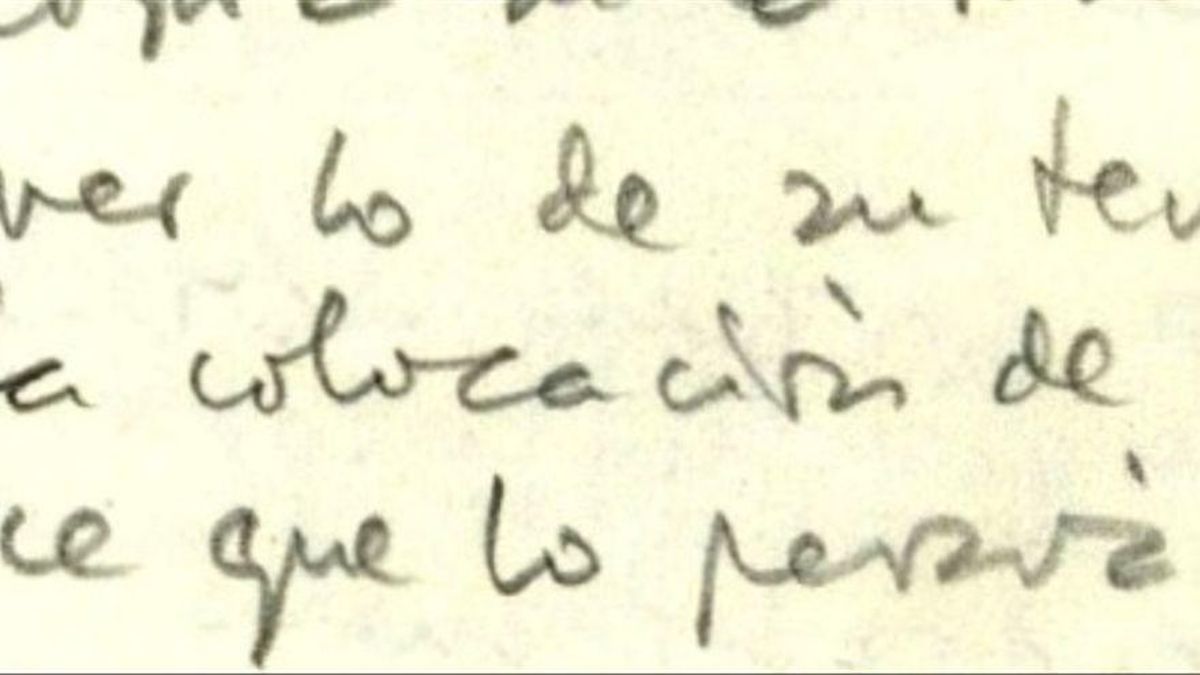 ver lo de su ten
la colocación de
ce que lo pensará